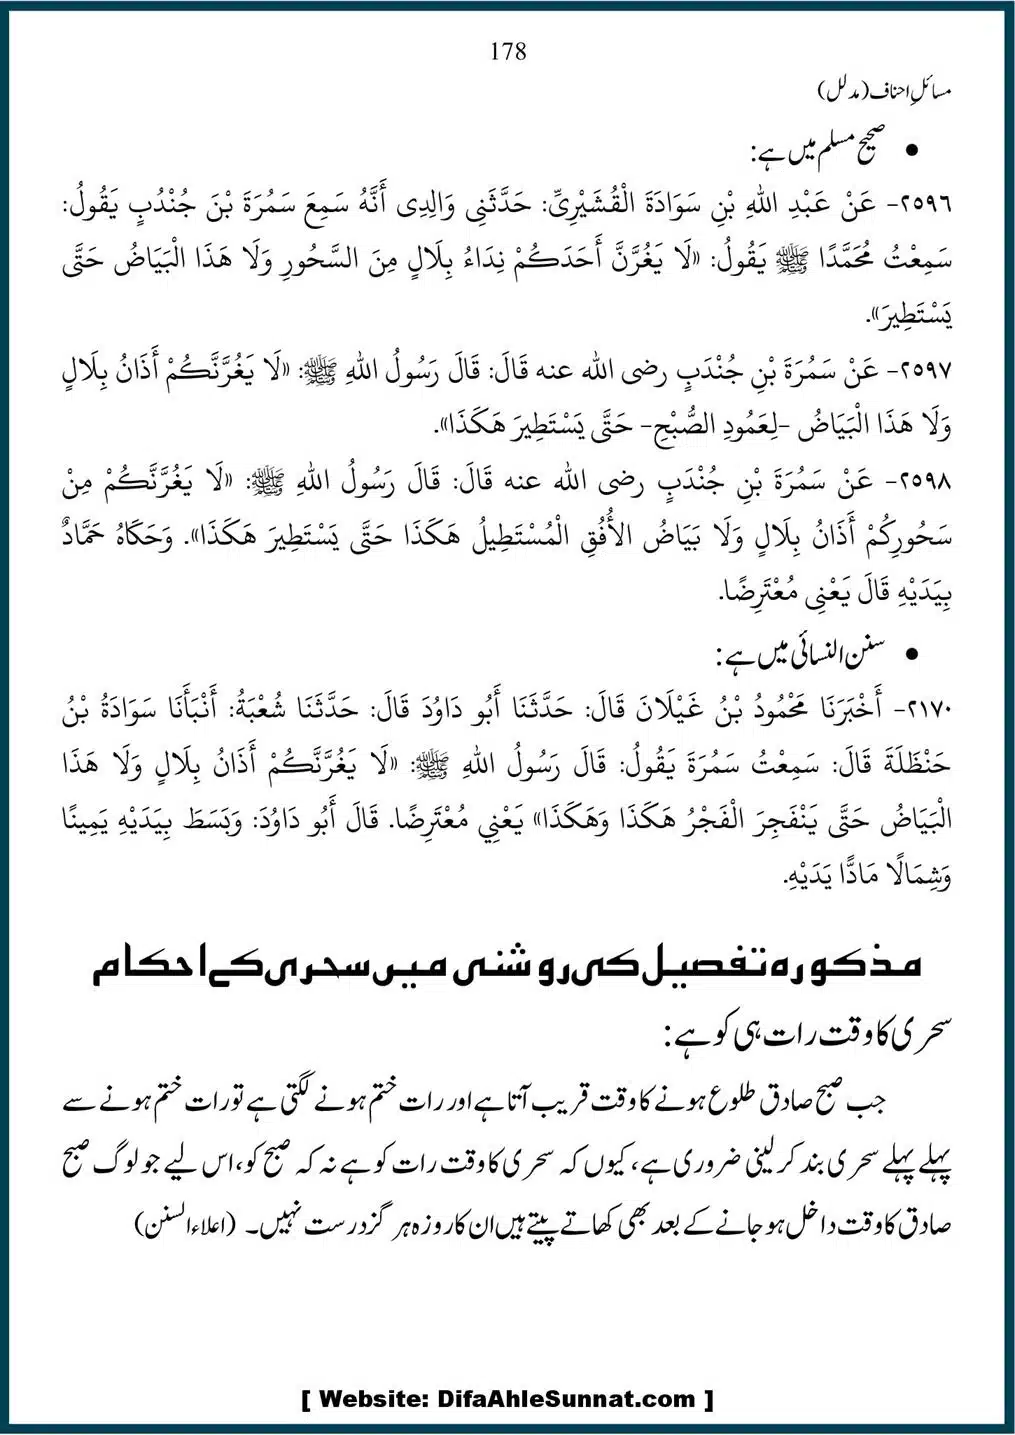 178
مسائلِ احناف (مدلل)
• صحیح مسلم میں ہے:
٢٥٩٦- عَنْ عَبْدِ اللهِ بْنِ سَوَادَةَ الْقُشَيْرِىِّ: حَدَّثَنِى وَالِدِى أَنَّهُ سَمِعَ سَمُرَةَ بْنَ جُنْدُبٍ يَقُولُ:
سَمِعْتُ مُحَمَّدًا ﷺ يَقُولُ: «لَا يَغُرَّنَّ أَحَدَكُمْ نِدَاءُ بِلَالٍ مِنَ السَّحُورِ وَلَا هَذَا الْبَيَاضُ حَتَّى
يَسْتَطِيرَ».
٢٥٩٧- عَنْ سَمُرَةَ بْنِ جُنْدَبٍ رضى الله عنه قَالَ: قَالَ رَسُولُ اللهِ ﷺ: «لَا يَغُرَّنَّكُمْ أَذَانُ بِلَالٍ
وَلَا هَذَا الْبَيَاضُ -لِعَمُودِ الصُّبْحِ- حَتَّى يَسْتَطِيرَ هَكَذَا».
٢٥٩٨- عَنْ سَمُرَةَ بْنِ جُنْدَبٍ رضى الله عنه قَالَ: قَالَ رَسُولُ اللهِ ﷺ: «لَا يَغُرَّنَّكُمْ مِنْ
سَحُورِكُمْ أَذَانُ بِلَالٍ وَلَا بَيَاضُ الأُفُقِ الْمُسْتَطِيلُ هَكَذَا حَتَّى يَسْتَطِيرَ هَكَذَا». وَحَكَاهُ حَمَّادٌ
بِيَدَيْهِ قَالَ يَعْنِى مُعْتَرِضًا.
• سنن النسائی میں ہے:
٢١٧٠- أَخْبَرَنَا مَحْمُودُ بْنُ غَيْلَانَ قَالَ: حَدَّثَنَا أَبُو دَاوُدَ قَالَ: حَدَّثَنَا شُعْبَةُ: أَنْبَأَنَا سَوَادَةُ بْنُ
حَنْظَلَةَ قَالَ: سَمِعْتُ سَمُرَةَ يَقُولُ: قَالَ رَسُولُ اللهِ ﷺ: «لَا يَغُرَّنَّكُمْ أَذَانُ بِلَالٍ وَلَا هَذَا
الْبَيَاضُ حَتَّى يَنْفَجِرَ الْفَجْرُ هَكَذَا وَهَكَذَا» يَعْنِي مُعْتَرِضًا. قَالَ أَبُو دَاوُدَ: وَبَسَطَ بِيَدَيْهِ يَمِينًا
وَشِمَالًا مَادًّا يَدَيْهِ.
مذکورہ تفصیل کی روشنی میں سحری کے احکام
سحری کا وقت رات ہی کو ہے:
جب صبح صادق طلوع ہونے کا وقت قریب آتا ہے اور رات ختم ہونے لگتی ہے تو رات ختم ہونے سے
پہلے پہلے سحری بند کر لینی ضروری ہے، کیوں کہ سحری کا وقت رات کو ہے نہ کہ صبح کو، اس لیے جو لوگ صبح
صادق کا وقت داخل ہو جانے کے بعد بھی کھاتے پیتے ہیں ان کا روزہ ہر گز درست نہیں۔ (اعلاء السنن)
[ Website: DifaAhleSunnat.com ]